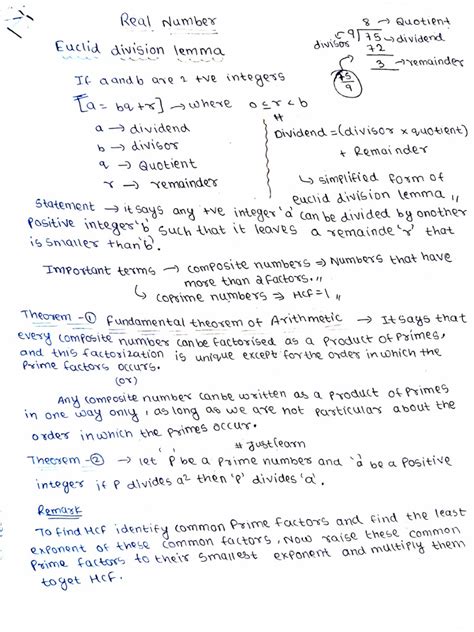 Real Number
8 → Quotient
Euclid division lemma
divisor 9 75 → dividend
72
3 → remainder
75
9
If a and b are 2 +ve integers
[a = bq + r] → where 0 ≤ r < b
a → dividend
b → divisor
q → Quotient
r → remainder
Dividend = (divisor x quotient)
+ Remainder
↳ simplified form of
euclid division lemma
Statement → it says any +ve integer 'a' can be divided by another
positive integer 'b' such that it leaves a remainde 'r' that
is smaller than 'b'.
Important terms → composite numbers ⇒ Numbers that have
more than 2 factors.,,
↳ coprime numbers ⇒ HCF = 1,,
Theorem - ① Fundamental theorem of Arithmetic → It says that
every composite number can be factorised as a Product of Primes,
and this factorization is unique except for the order in which the
Prime factors occurs.
(or)
Any composite number can be written as a product of primes
in one way only, as long as we are not particular about the
order in which the primes occur.
# Just learn
Theorem - ② → let 'P' be a Prime number and 'a' be a Positive
integer if P divides a² then 'p' divides 'a'.
Remark
To find HCF identify common Prime factors and find the least
exponent of these common factors, Now raise these common
Prime factors to their smallest exponent and multiply them
to get HCF.